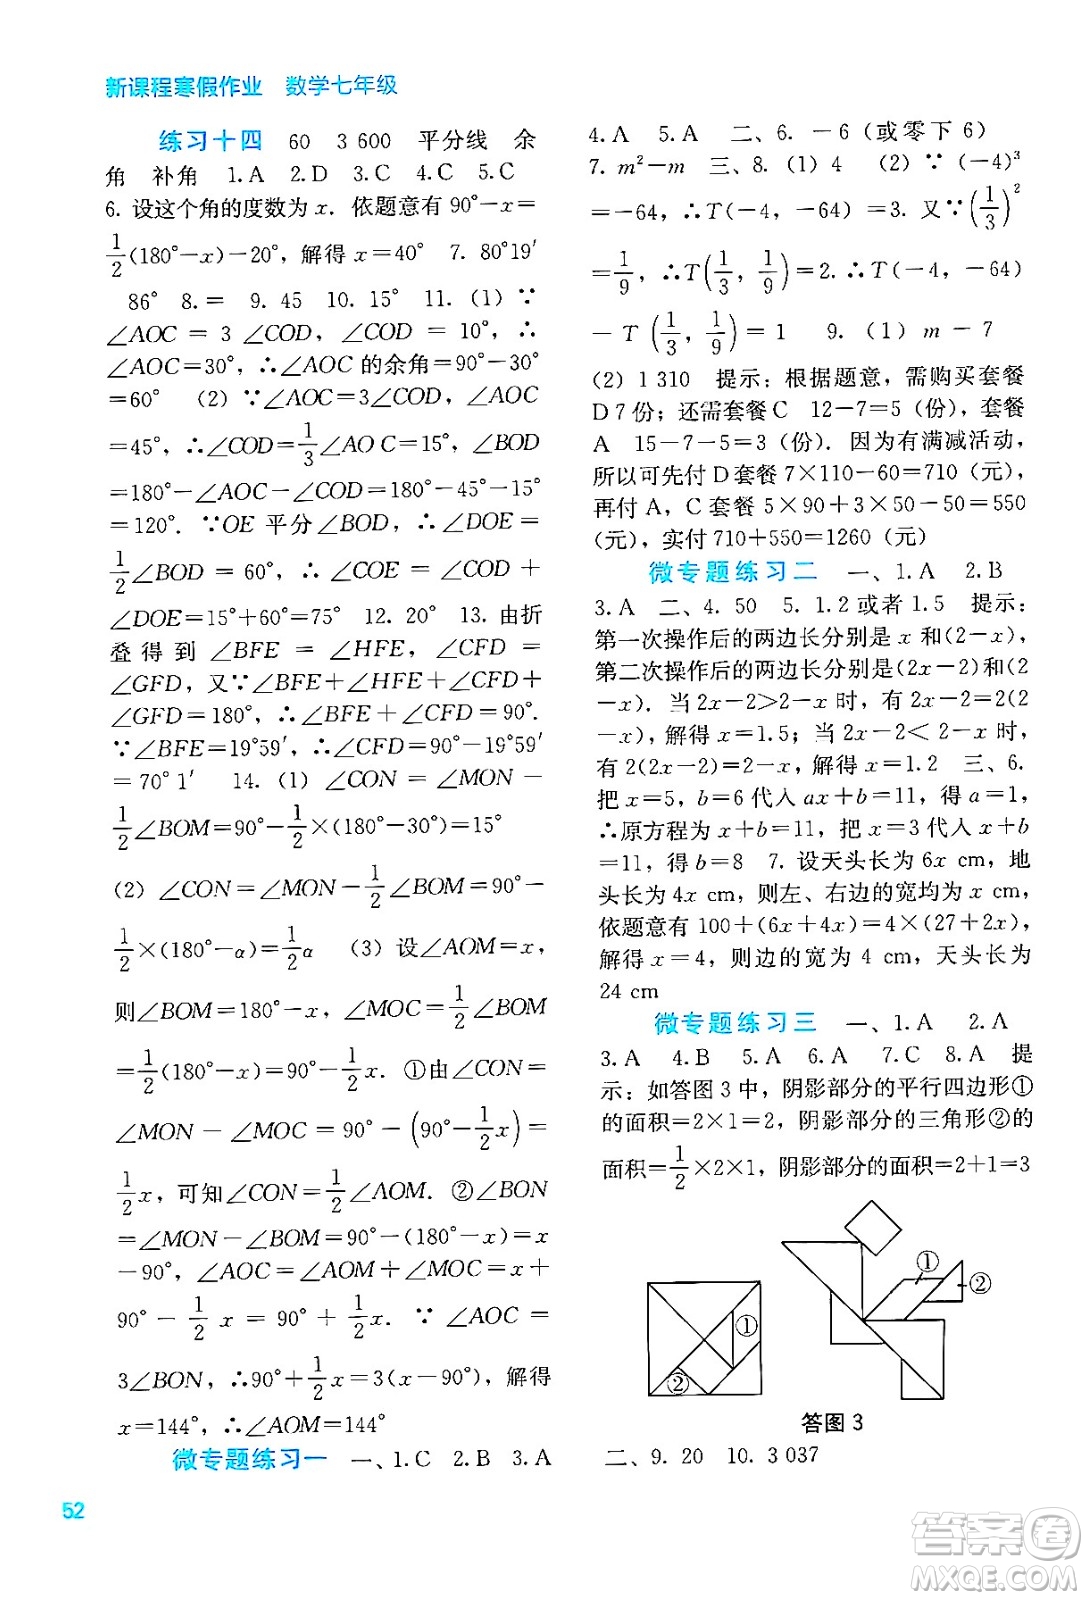 新课程寒假作业　数学七年级
练习十四　60　3 600　平分线　余
角　补角　1. A　2. D　3. C　4. C　5. C
6. 设这个角的度数为 x. 依题意有 90°－x＝
1/2(180°－x)－20°, 解得 x＝40°　7. 80°19′
86°　8. ＝　9. 45　10. 15°　11. (1) ∵
∠AOC ＝ 3 ∠COD, ∠COD ＝ 10°, ∴
∠AOC＝30°, ∴∠AOC 的余角＝90°－30°
＝60°　(2) ∵∠AOC＝3∠COD, ∠AOC
＝45°, ∴∠COD＝1/3∠AO C＝15°, ∠BOD
＝180°－∠AOC－∠COD＝180°－45°－15°
＝120°. ∵OE 平分∠BOD, ∴∠DOE＝
1/2∠BOD ＝ 60°, ∴ ∠COE ＝ ∠COD ＋
∠DOE＝15°＋60°＝75°　12. 20　13. 由折
叠 得 到 ∠BFE ＝ ∠HFE, ∠CFD ＝
∠GFD, 又∵∠BFE＋∠HFE＋∠CFD＋
∠GFD＝180°, ∴∠BFE＋∠CFD＝90°.
∵∠BFE＝19°59′, ∴∠CFD＝90°－19°59′
＝70° 1′　14. (1) ∠CON ＝ ∠MON －
1/2∠BOM＝90°－1/2×(180°－30°)＝15°
(2) ∠CON＝∠MON－1/2∠BOM＝90°－
1/2×(180°－α)＝1/2α　(3) 设∠AOM＝x,
则∠BOM＝180°－x, ∠MOC＝1/2∠BOM
＝1/2(180°－x)＝90°－1/2x. ①由∠CON＝
∠MON－∠MOC＝90°－(90°－1/2x)＝
1/2x, 可知∠CON＝1/2∠AOM. ②∠BON
＝∠MON－∠BOM＝90°－(180°－x)＝x
－90°, ∠AOC＝∠AOM＋∠MOC＝x＋
90° － 1/2 x ＝ 90° ＋ 1/2 x. ∵ ∠AOC ＝
3∠BON, ∴90°＋1/2x＝3(x－90°), 解得
x＝144°, ∴∠AOM＝144°
微专题练习一　一、1. C　2. B　3. A
4. A　5. A　二、6. －6 (或零下 6)
7. m²－m　三、8. (1) 4　(2) ∵ (－4)³
＝－64, ∴T(－4, －64)＝3. 又∵(1/3)²
＝1/9, ∴T(1/3, 1/9)＝2. ∴T(－4, －64)
－ T (1/3, 1/9) ＝ 1　9. (1) m － 7
(2) 1 310　提示: 根据题意, 需购买套餐
D 7 份; 还需套餐 C　12－7＝5 (份), 套餐
A　15－7－5＝3 (份). 因为有满减活动,
所以可先付 D 套餐 7×110－60＝710 (元),
再付 A, C 套餐 5×90＋3×50－50＝550
(元), 实付 710＋550＝1260 (元)
微专题练习二　一、1. A　2. B
3. A　二、4. 50　5. 1. 2 或者 1. 5　提示:
第一次操作后的两边长分别是 x 和(2－x),
第二次操作后的两边长分别是(2x－2)和(2
－x). 当 2x－2＞2－x 时, 有 2x－2＝2(2
－x), 解得 x＝1.5; 当 2x－2＜ 2－x 时,
有 2(2x－2)＝2－x, 解得 x＝1. 2　三、6.
把 x＝5, b＝6 代入 ax＋b＝11, 得 a＝1,
∴原方程为 x＋b＝11, 把 x＝3 代入 x＋b
＝11, 得 b＝8　7. 设天头长为 6x cm, 地
头长为 4x cm, 则左、右边的宽均为 x cm,
依题意有 100＋(6x＋4x)＝4×(27＋2x),
解得 x＝4, 则边的宽为 4 cm, 天头长为
24 cm
微专题练习三　一、1. A　2. A
3. A　4. B　5. A　6. A　7. C　8. A　提
示: 如答图 3 中, 阴影部分的平行四边形①
的面积＝2×1＝2, 阴影部分的三角形②的
面积＝1/2×2×1, 阴影部分的面积＝2＋1＝3
① ② ① ②
答图 3
二、9. 20　10. 3 037
52
答案卷
MXQE.COM